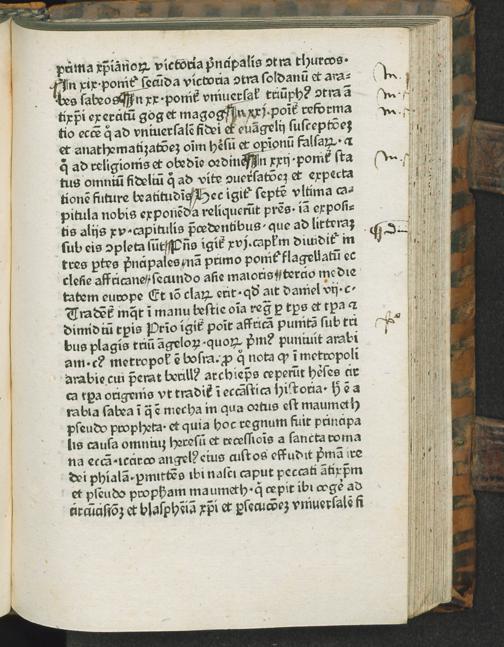 prima xp̄ianoꝝ victoria pͥncipalis ꝯtra thurcos·
¶In xix·ponit᷑ secūda victoria ꝯtra soldanū et ara-
bes sabeos ¶In xx·ponit᷑ vniuersal᷑ triūphꝰ ꝯtra ā
tixp̄i exercitū gog et magog ¶In xxj·poīt᷑ reforma
tio ecce ꝙ ad vniuersalē fidei et euāgelij susceptōeꝫ
et anathematizatōeꝫ oīm hēsū et opīonū falsaꝝ· ⁊
ꝙ ad religionis et obediē ordinē ¶In xxij·ponit᷑ sta
tus omniū fideliū ꝙ ad vite ꝯuersatōeꝫ et expecta
tionē future beatitudīs Hec igit᷑ septē vltima ca-
pitula nobis exponēda reliquerūt pr̄es·iā exposi-
tis alijs xv·capitulis p̄cedentibus·que ad litteraꝫ
sub eis ꝯpleta sūt ¶Pn̄s igit᷑ xvj·caplm̄ diuidit᷑ in
tres ꝑtes pͥncipales·nā primo ponit᷑ flagellatū ec
clesie affricane secundo asie maioris tercio medie
tatem europe Et iō claꝝ erit·qd̓ ait daniel vij·c·
Tradēt᷑ inq̄t ī manu bestie oīa reḡ ꝑ tp̄s et tp̄a ⁊
dimidiū tp̄is Prīo igit᷑ poīt affricā punitā sub tri
bus plagis triū āgeloꝝ·quoꝝ pͥmꝰ puniuit arabi
am·cꝰ metropol᷑ ē bosra·ꝓ ꝙ nota ꝙ ī metropoli
arabie cui p̄erat berillꝰ archiep̄s ceperūt hēses cir
ca tp̄a origenis vt tradit᷑ ī eccāstica historia· h̄ ē a
rabia sabea ī q̄ ē mecha in qua ortus est maumeth
pseudo propheta·et quia hoc regnum fuit principa
lis causa omniuꝫ heresū et recessiōis a sancta roma
na eccā·icirco angelꝰ eius custos effudit pͥmā ire
dei phialā·ꝑmittēs ibi nasci caput peccati ātixp̄m
et pseudo prop̄ham maumeth·ꝙ cepit ibi cogē ad
circūcisiōꝫ et blasphēiā xp̄i et ꝑsecucōeꝫ vniuersalē fi